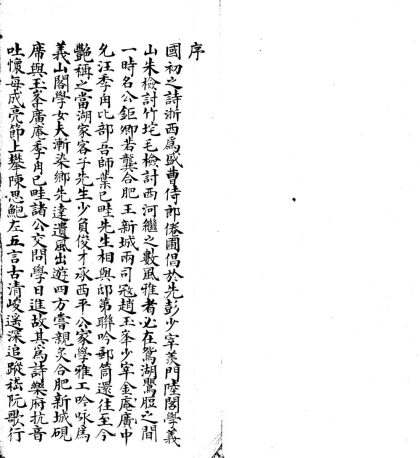 序
國初之詩浙西爲盛曹侍郎倦圃倡於先彭少宰羨門陸閣學義
山朱檢討竹垞毛檢討西河繼之數風雅者必在鴛湖鸎脰之間
一時名公鉅卿若龔合肥王新城兩司寇趙玉峯少宰金庵廣中
允汪季甪比部吾師葉已畦先生相與邱第聯吟郵筒還往至今
艷稱之當湖家客子先生少負俊才承西平公家學雅工吟咏爲
義山閣學女夫漸染鄉先達遺風出遊四方嘗親炙合肥新城硯
席與玉峯廣庵季甪已畦諸公交問學日進故其爲詩樂府抗音
吐懷每成亮節上攀陳思鮑左五言古清峻遙深追蹤嵇阮歌行